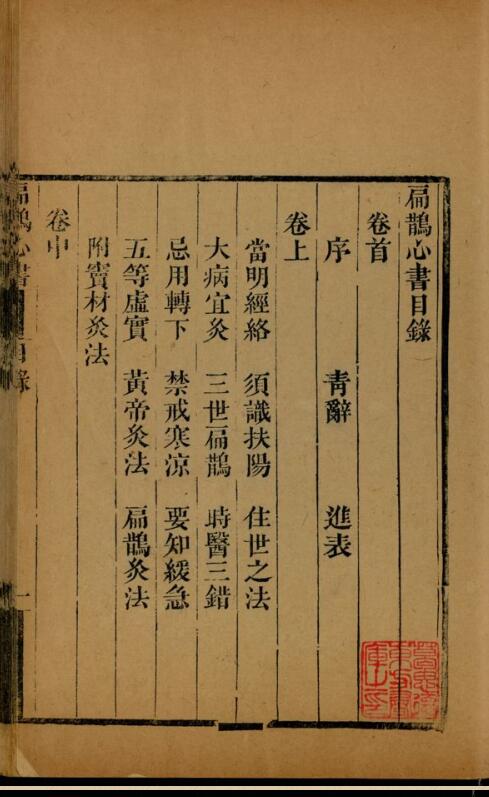 扁鵲心書目錄
卷首
序 靑辭 進表
卷上
當明經絡 須識扶陽 住世之法
大病宜灸 三世扁鵲 時醫三錯
忌用轉下 禁戒寒涼 要知緩急
五等虛實 黃帝灸法 扁鵲灸法
附竇材灸法
卷中
扁鵲心書 目錄 一